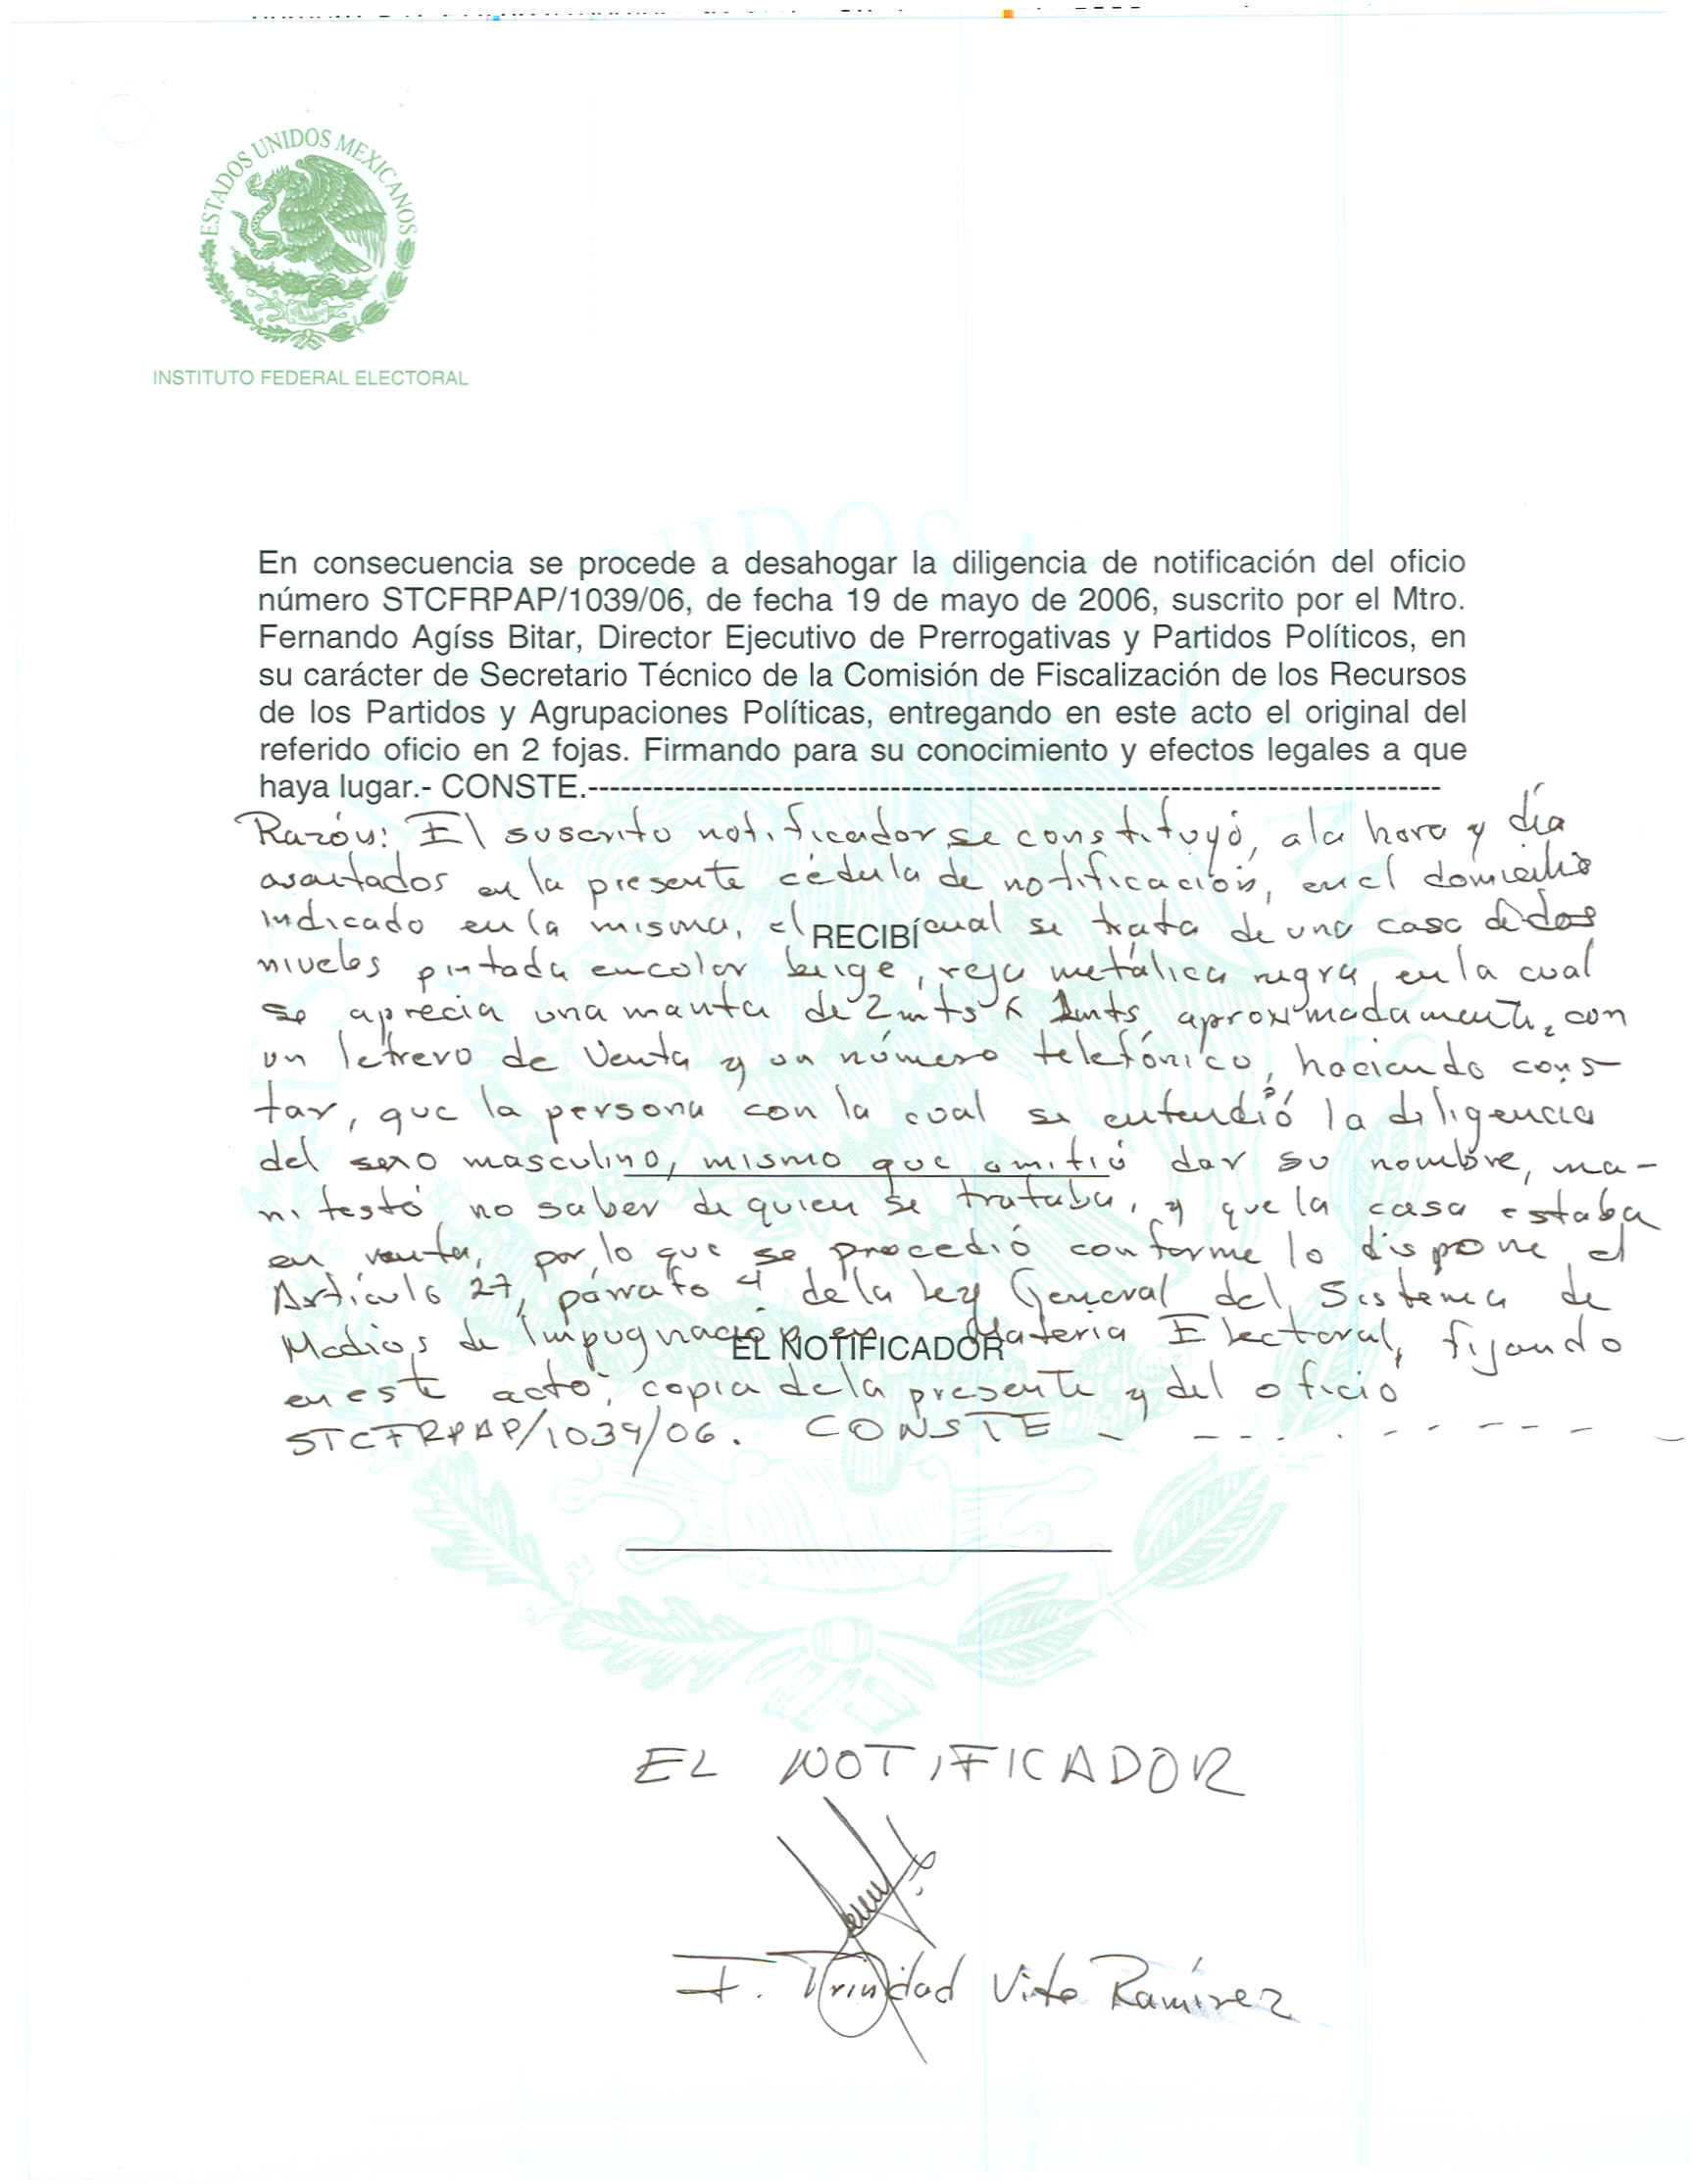 ESTADOS UNIDOS MEXICANOS
INSTITUTO FEDERAL ELECTORAL
En consecuencia se procede a desahogar la diligencia de notificación del oficio
número STCFRPAP/1039/06, de fecha 19 de mayo de 2006, suscrito por el Mtro.
Fernando Agíss Bitar, Director Ejecutivo de Prerrogativas y Partidos Políticos, en
su carácter de Secretario Técnico de la Comisión de Fiscalización de los Recursos
de los Partidos y Agrupaciones Políticas, entregando en este acto el original del
referido oficio en 2 fojas. Firmando para su conocimiento y efectos legales a que
haya lugar.- CONSTE.-------------------------------------------------------------------------------
Razón: El suscrito notificador se constituyó, a la hora y día
asentados en la presente cédula de notificación, en el domicilio
indicado en la misma, el cual se trata de una casa de dos
RECIBÍ
niveles pintada en color beige, reja metálica negra, en la cual
se aprecia una manta de 2 mts x 1mts aproximadamente, con
un letrero de Venta y un número telefónico, haciendo cons-
tar, que la persona con la cual se entendió la diligencia
del sexo masculino, mismo que omitió dar su nombre, ma-
nifestó no saber de quien se trataba, y que la casa estaba
en venta, por lo que se procedió conforme lo dispone el
Artículo 27, párrafo 4 de la Ley General del Sistema de
Medios de Impugnación en Materia Electoral, fijando
EL NOTIFICADOR
en este acto, copia de la presente y del oficio
STCFRPAP/1039/06. CONSTE - - - - - - - - - -
EL NOTIFICADOR
Trinidad Vite Ramírez